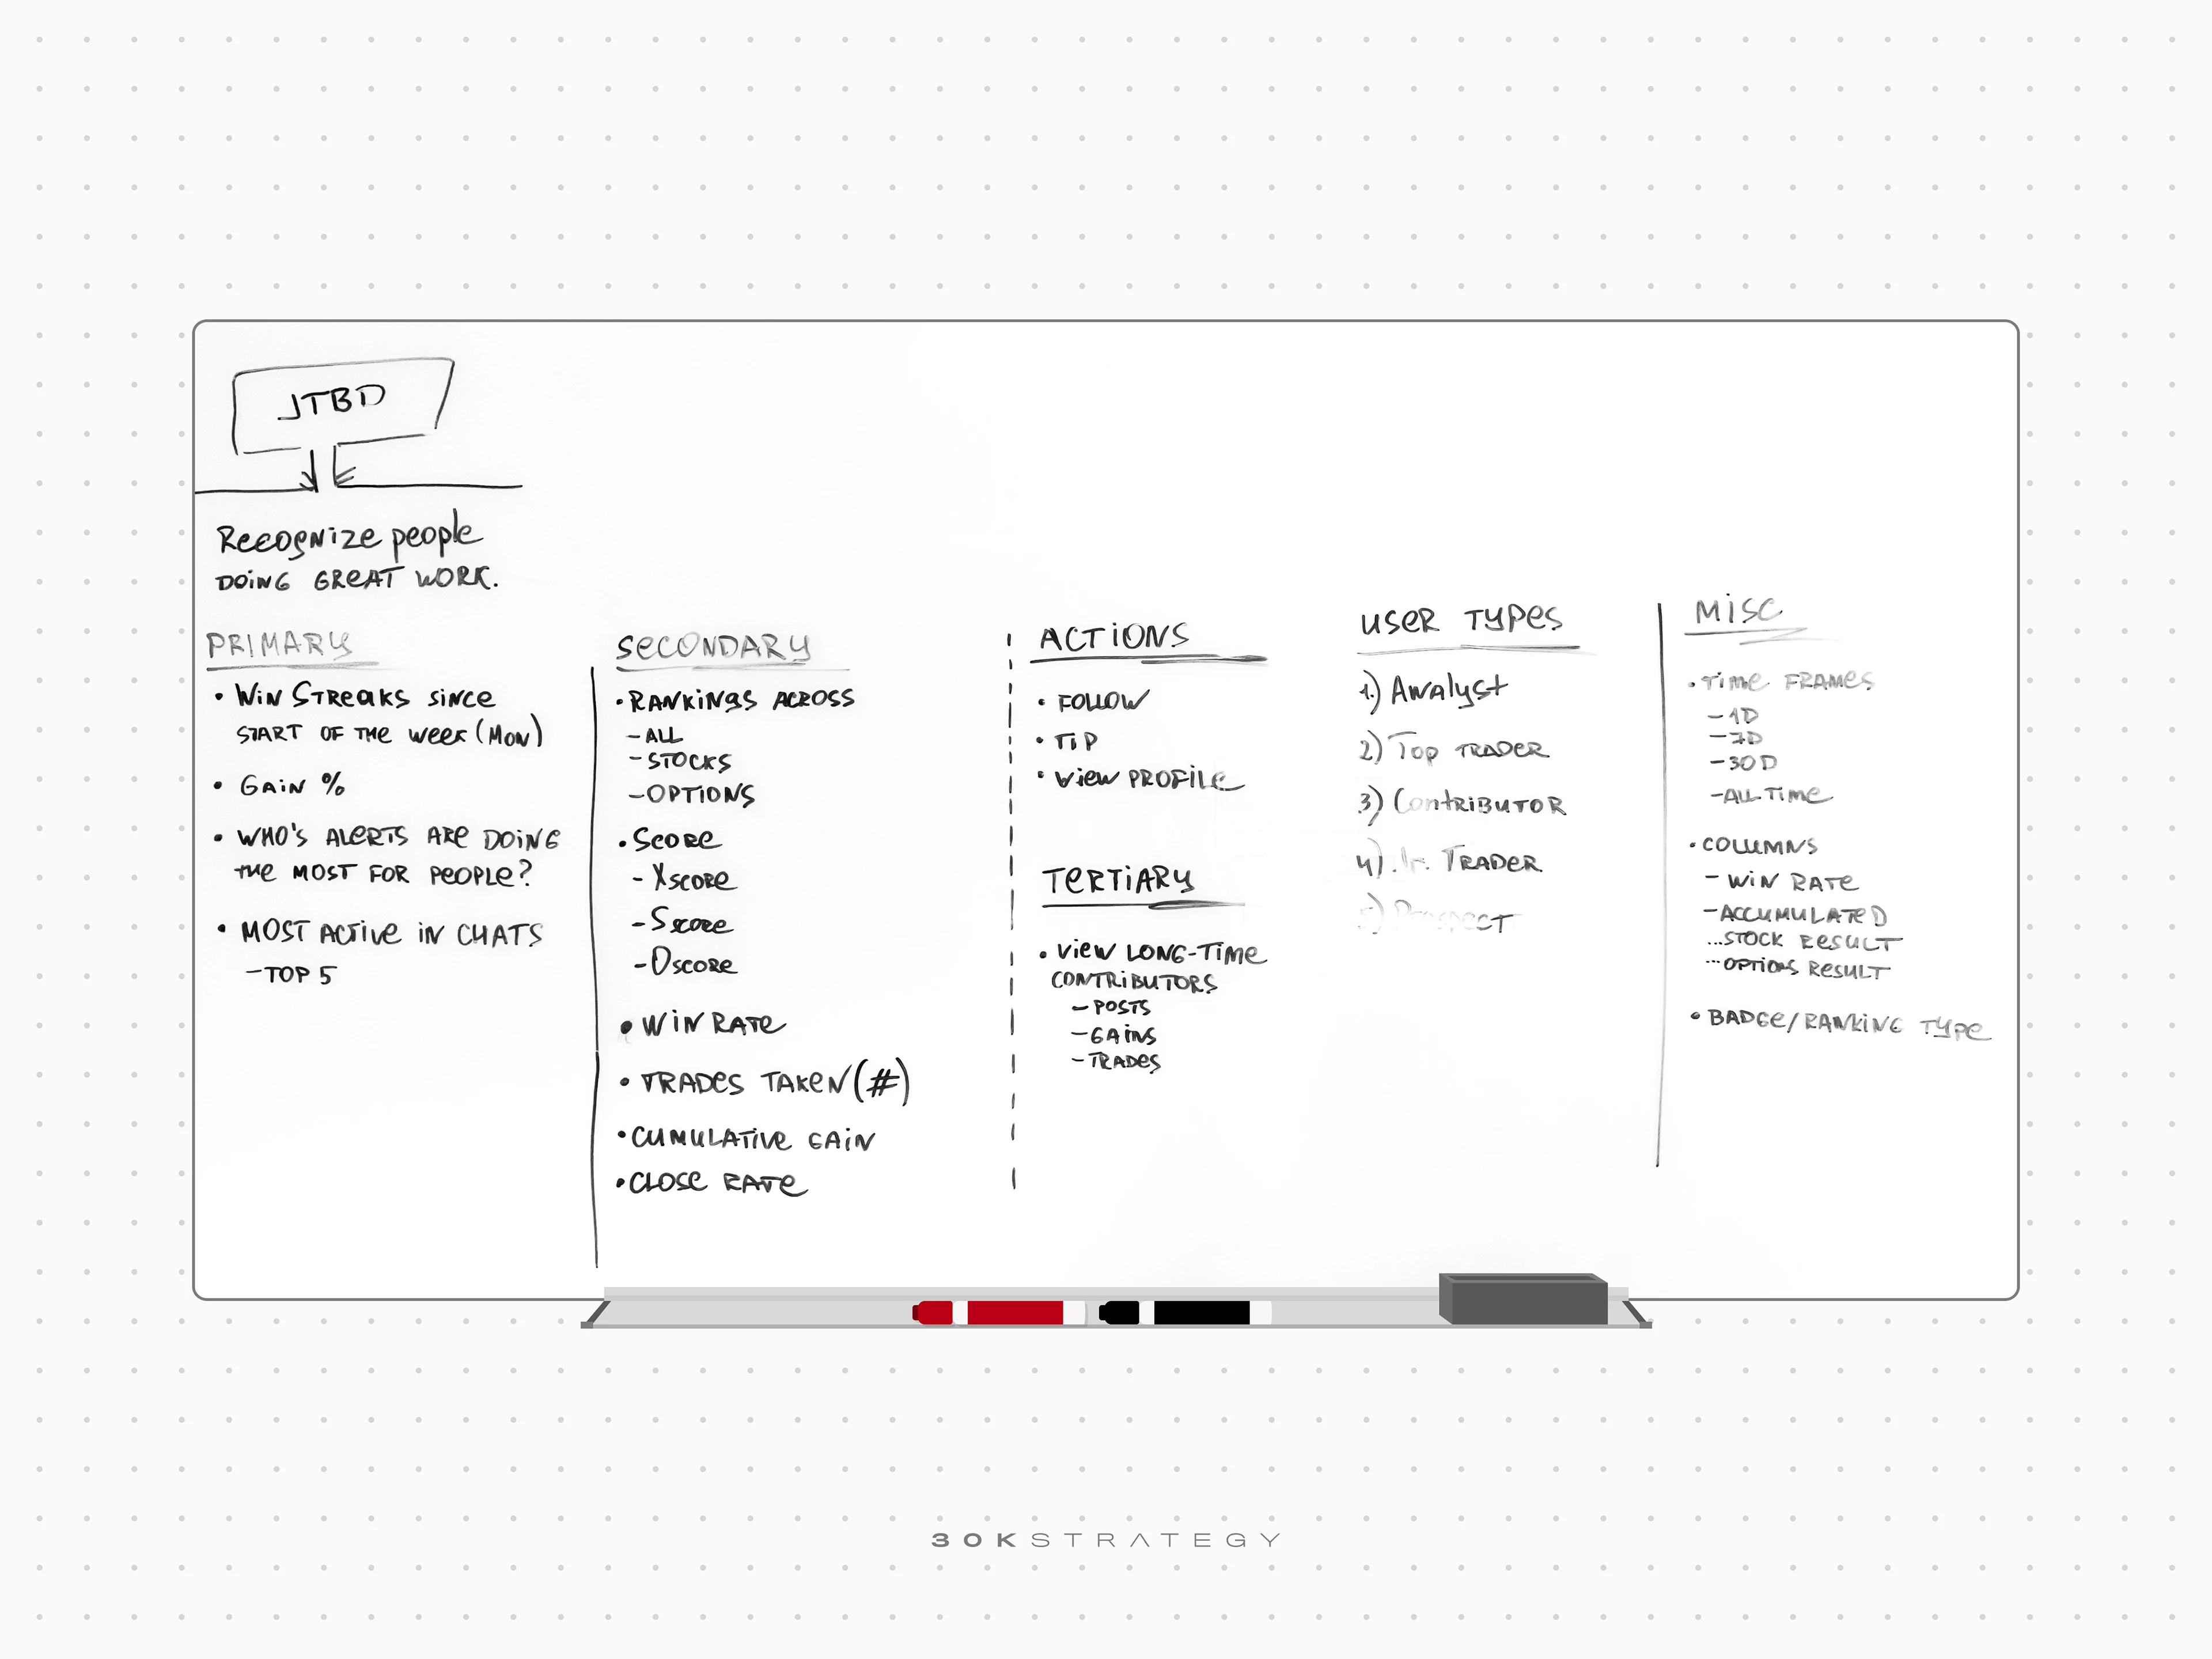 JTBD
Recognize people
DOING GREAT WORK.
PRIMARY
• WIN STREAKS SINCE
START OF THE WEEK (MON)
• GAIN %
• WHO'S ALERTS ARE DOING
THE MOST FOR PEOPLE?
• MOST ACTIVE IN CHATS
- TOP 5
SECONDARY
• RANKINGS ACROSS
- ALL
- STOCKS
- OPTIONS
• SCORE
- XSCORE
- SSCORE
- OSCORE
• WIN RATE
• TRADES TAKEN (#)
• CUMULATIVE GAIN
• CLOSE RATE
ACTIONS
• FOLLOW
• TIP
• VIEW PROFILE
TERTIARY
• VIEW LONG-TIME
CONTRIBUTORS
- POSTS
- GAINS
- TRADES
USER TYPES
1.) Analyst
2) TOP TRADER
3) CONTRIBUTOR
4) TRADER
5) Prospect
MISC
• TIME FRAMES
- 1D
- 7D
- 30D
- ALL TIME
• COLUMNS
- WIN RATE
- ACCUMULATED
...STOCK RESULT
...OPTIONS RESULT
• BADGE/RANKING TYPE
30KSTRATEGY